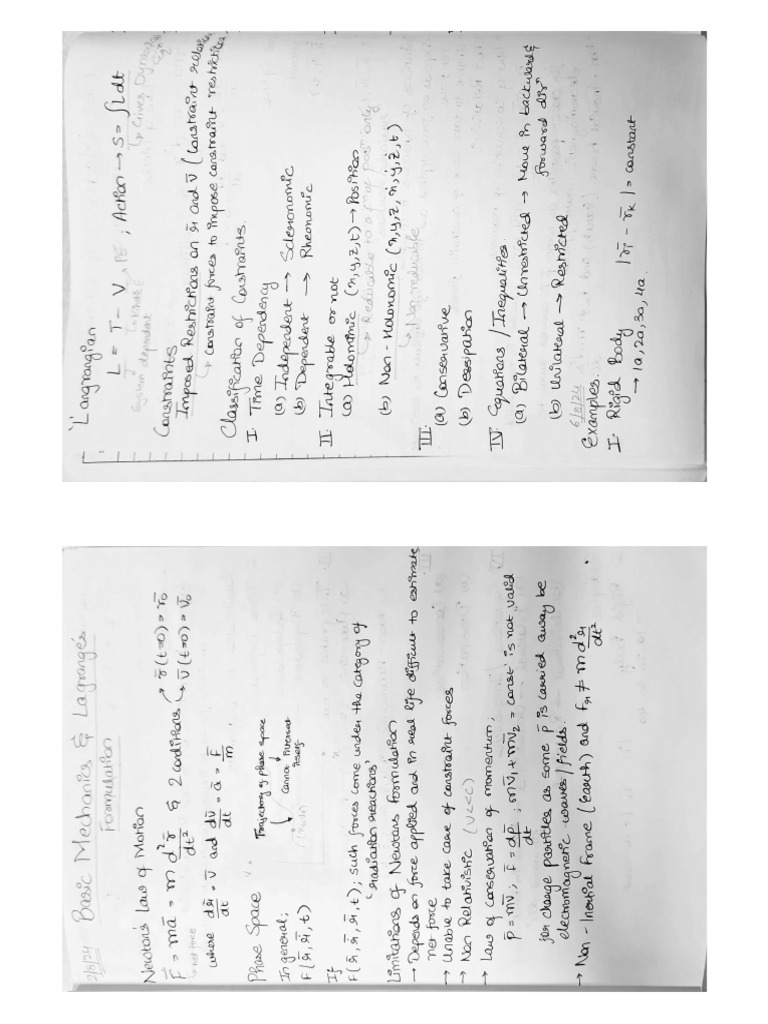 2/8/24 Basic Mechanics & Lagrange's
Formulation
Newton's Law of Motion
F̄ = mā = m d²r̄/dt² & 2 conditions → r̄(t=0) = r̄₀
→ v̄(t=0) = v̄₀
↳ net force
where dr̄/dt = v̄ and dv̄/dt = ā = F̄/m
Phase Space
Trajectory of phase space
cannot intersect
In general;
F(r̄, ṙ̄, t)
If
F(r̄, ṙ̄, r̈̄, t); such forces come under the category of
'radiation reactions'
Limitations of Newtons Formulation
→ Depends on force applied and in real life difficult to estimate
net force
→ Unable to take care of constraint forces
→ Non Relativistic (v<<c)
→ Law of conservation of momentum;
p̄ = mv̄; F̄ = dp̄/dt; mv̄₁ + mv̄₂ = const' is not valid
for charge particles as some p̄ is carried away be
electromagnetic waves/fields.
→ Non-Inertial Frame (earth) and F ≠ m d²r/dt²
'Langrangian
L = T - V ; Action → S = ∫Ldt
↳ PE
↳ Gives Dynamical Eqn
System dependent
Constraints
Imposed Restrictions on r̄ and v̄ (constraint relation)
↳ constraint forces to impose constraint restrictions
Classification of Constraints.
I. Time Dependency
(a) Independent → Scleronomic
(b) Dependent → Rheonomic
II. Integrable or not
(a) Holonimic (x,y,z,t) → Position
↳ Reducable to a fn of posn only
(b) Non-Holonomic (x,y,z,ẋ,ẏ,ż,t)
↳ Non reducable
III.
(a) Conservative
(b) Dessipation
IV. Equations / Inequalities
(a) Bilateral → Unrestricted → Move in backward &
forward dirⁿ
(b) Unilateral → Restricted
6/8/24
Examples.
I. Rigid body |r̄ᵢ - r̄ₖ| = constant
→ 1a, 2a, 3a, 4a